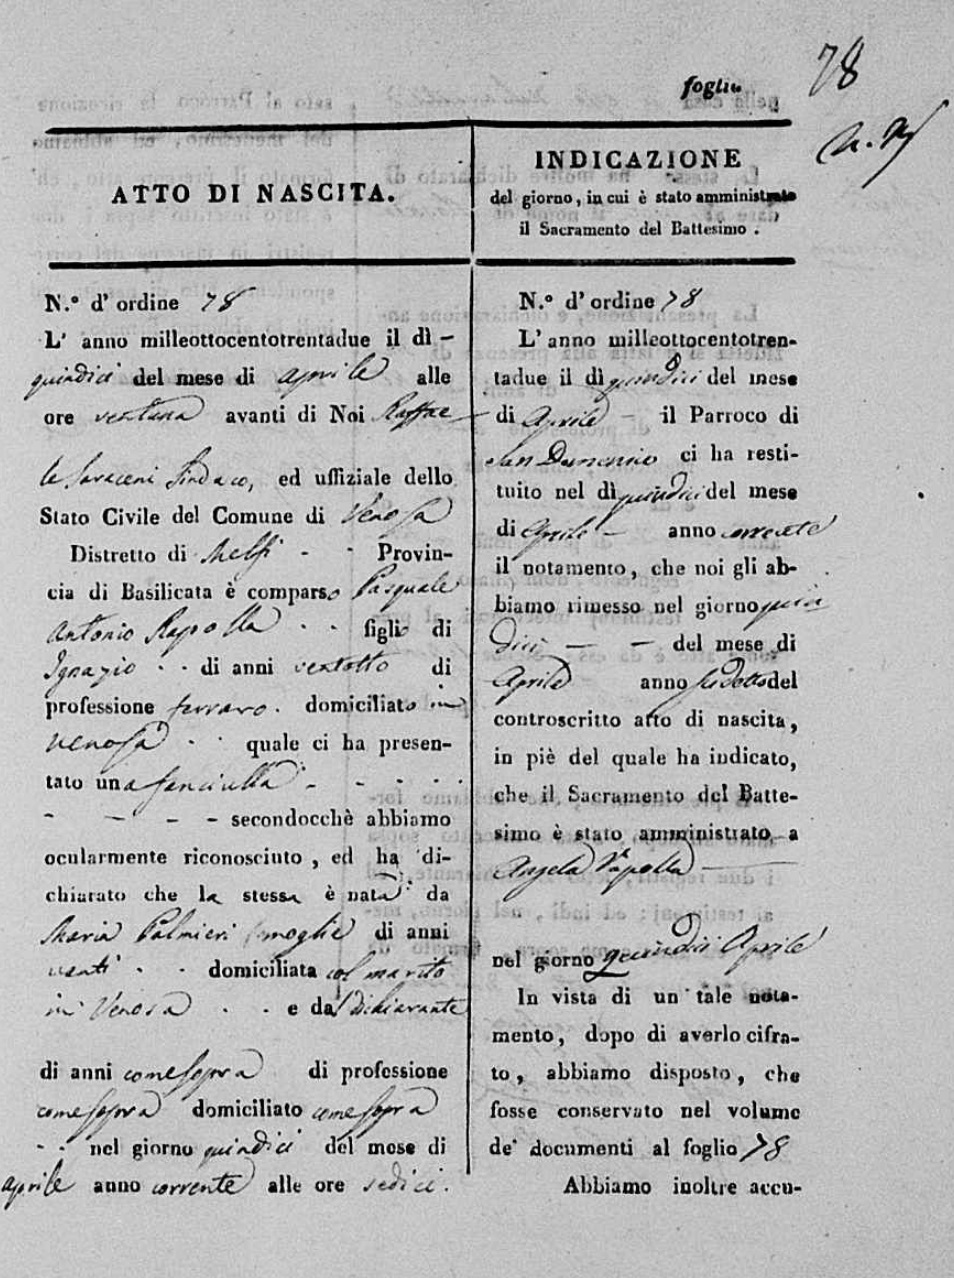 foglio 78
ATTO DI NASCITA.
N.° d' ordine 78
L' anno milleottocentotrentadue il dì –
quindici del mese di aprile alle
ore ventuna avanti di Noi Raffae
le Saraceni Sindaco, ed uffiziale dello
Stato Civile del Comune di Venosa
Distretto di Melfi - - Provin-
cia di Basilicata è comparso Pasquale
Antonio Rapolla - - figlio di
Ignazio - - di anni ventotto di
professione ferraro. domiciliato in
Venosa - - quale ci ha presen-
tato una fanciulla - - - - -
- - - - secondocchè abbiamo
ocularmente riconosciuto, ed ha di-
chiarato che la stessa è nata da
Maria Palmieri moglie di anni
venti - - domiciliata col marito
in Venosa - - e dal Dichiarante
di anni come sopra di professione
come sopra domiciliato come sopra
- - nel giorno quindici del mese di
aprile anno corrente alle ore sedici.
INDICAZIONE
del giorno, in cui è stato amministrato
il Sacramento del Battesimo.
N.° d' ordine 78
L' anno milleottocentotren-
tadue il dì quindici del mese
di Aprile – il Parroco di
ci ha resti-
tuito nel dì quindici del mese
di Aprile – anno corrente
il notamento, che noi gli ab-
biamo rimesso nel giorno quin
dici — — del mese di
Aprile anno sudetto del
controscritto atto di nascita,
in piè del quale ha indicato,
che il Sacramento del Batte-
simo è stato amministrato a
Angela Rapolla —
nel giorno quindici Aprile
In vista di un tale nota-
mento, dopo di averlo cifra-
to, abbiamo disposto, che
fosse conservato nel volume
de' documenti al foglio 78
Abbiamo inoltre accu-